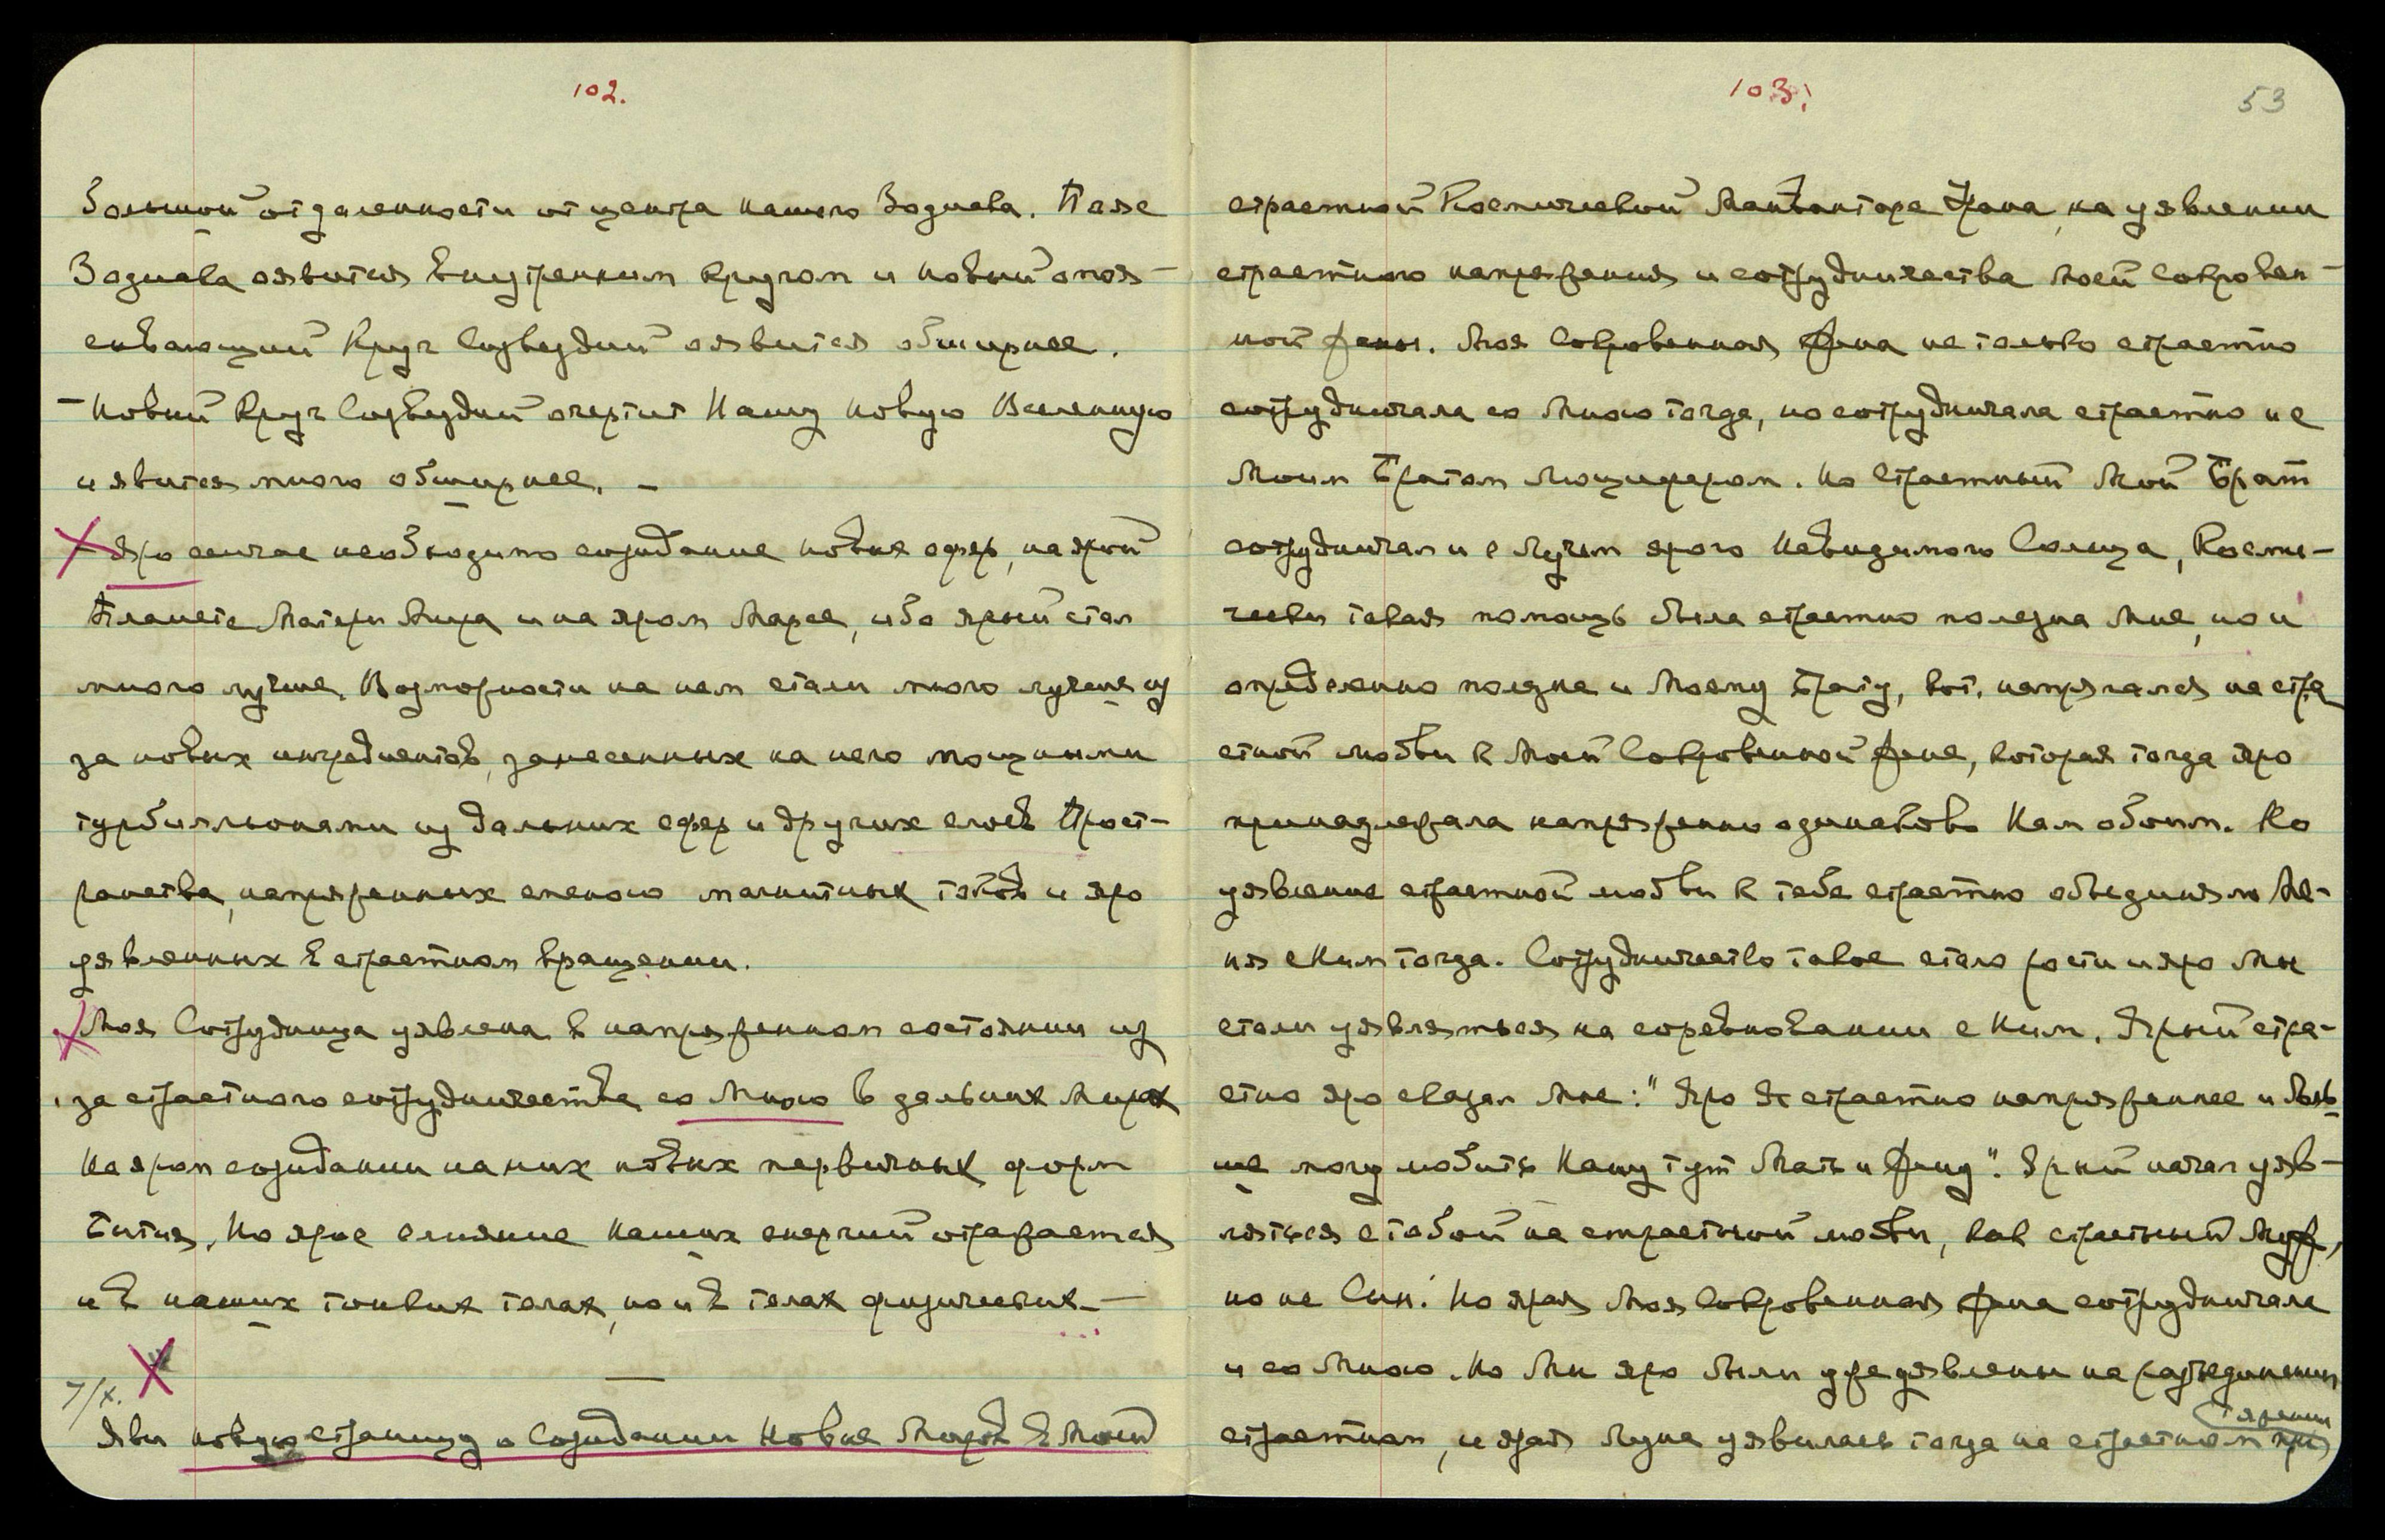 102.
большой отдаленности от центра нашего Зодиака. Пояс
Зодиака оявится внутренним кругом и новый опоя-
сывающий Круг Созвездий оявится обширнее.
– Новый Круг Созвездий очертит Нашу новую Вселенную
и явится много обширнее. –
– Яро сейчас необходимо созидание новых сфер, на ярой
Планете Матери Мира и на яром Марсе, ибо ярый стал
много лучше. Возможности на нем стали много лучше из
за новых ингредиентов, занесенных на него мощными
турбильонами из дальних сфер и других слоев Прост-
ранства, напряженных силою магнитных токов и яро
уявленных в страстном вращении.
Моя Сотрудница уявлена в напряженном состоянии из
за страстного сотрудничества со Мною в дальних Мирах
На яром созидании на них новых первичных форм
бытия. Но ярое слияние наших энергий отражается
и в наших тонких телах, но и в телах физических. –
7/X.
Яви новую страницу о Созидании Новых Миров в Моей
103.
53
страстной Космической Манвантаре Урана, на уявлении
страстного напряжения и сотрудничества моей Сокровен-
ной жены. Моя Сокровенная Жена не только страстно
сотрудничала со Мною тогда, но сотрудничала страстно и с
Моим Братом Люцифером. Но Страстный Мой Брат
сотрудничал и с Лучем ярого Невидимого Солнца, Косми-
чески такая помощь была страстно полезна Мне, но и
определенно полезна и Моему Брату, кот. напрягался на стра
стной любви к Моей Сокровенной Жене, которая тогда яро
принадлежала напряженно одинаково Нам обоим. Но
уявление страстной любви к тебе страстно объединяло Ме-
ня с Ним тогда. Сотрудничество такое стало расти и яро Мы
стали уявляться на соревновании с Ним. Ярый стра-
стно яро сказал Мне: "Яро Я страстно напряженнее и боль
ше могу любить Нашу тут Мать и Жену". Ярый начал уяв-
ляться с тобой на страстной любви, как страстный Муж,
но не Сын. Но ярая Моя Сокровенная Жена сотрудничала
и со Мною. Но Мы яро были уже уявлены на разъединении
страстном, и ярая Луна уявилась тогда на страстном